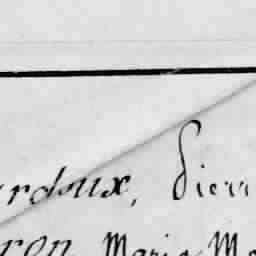 rdoux, Pier
ron Marie Ma